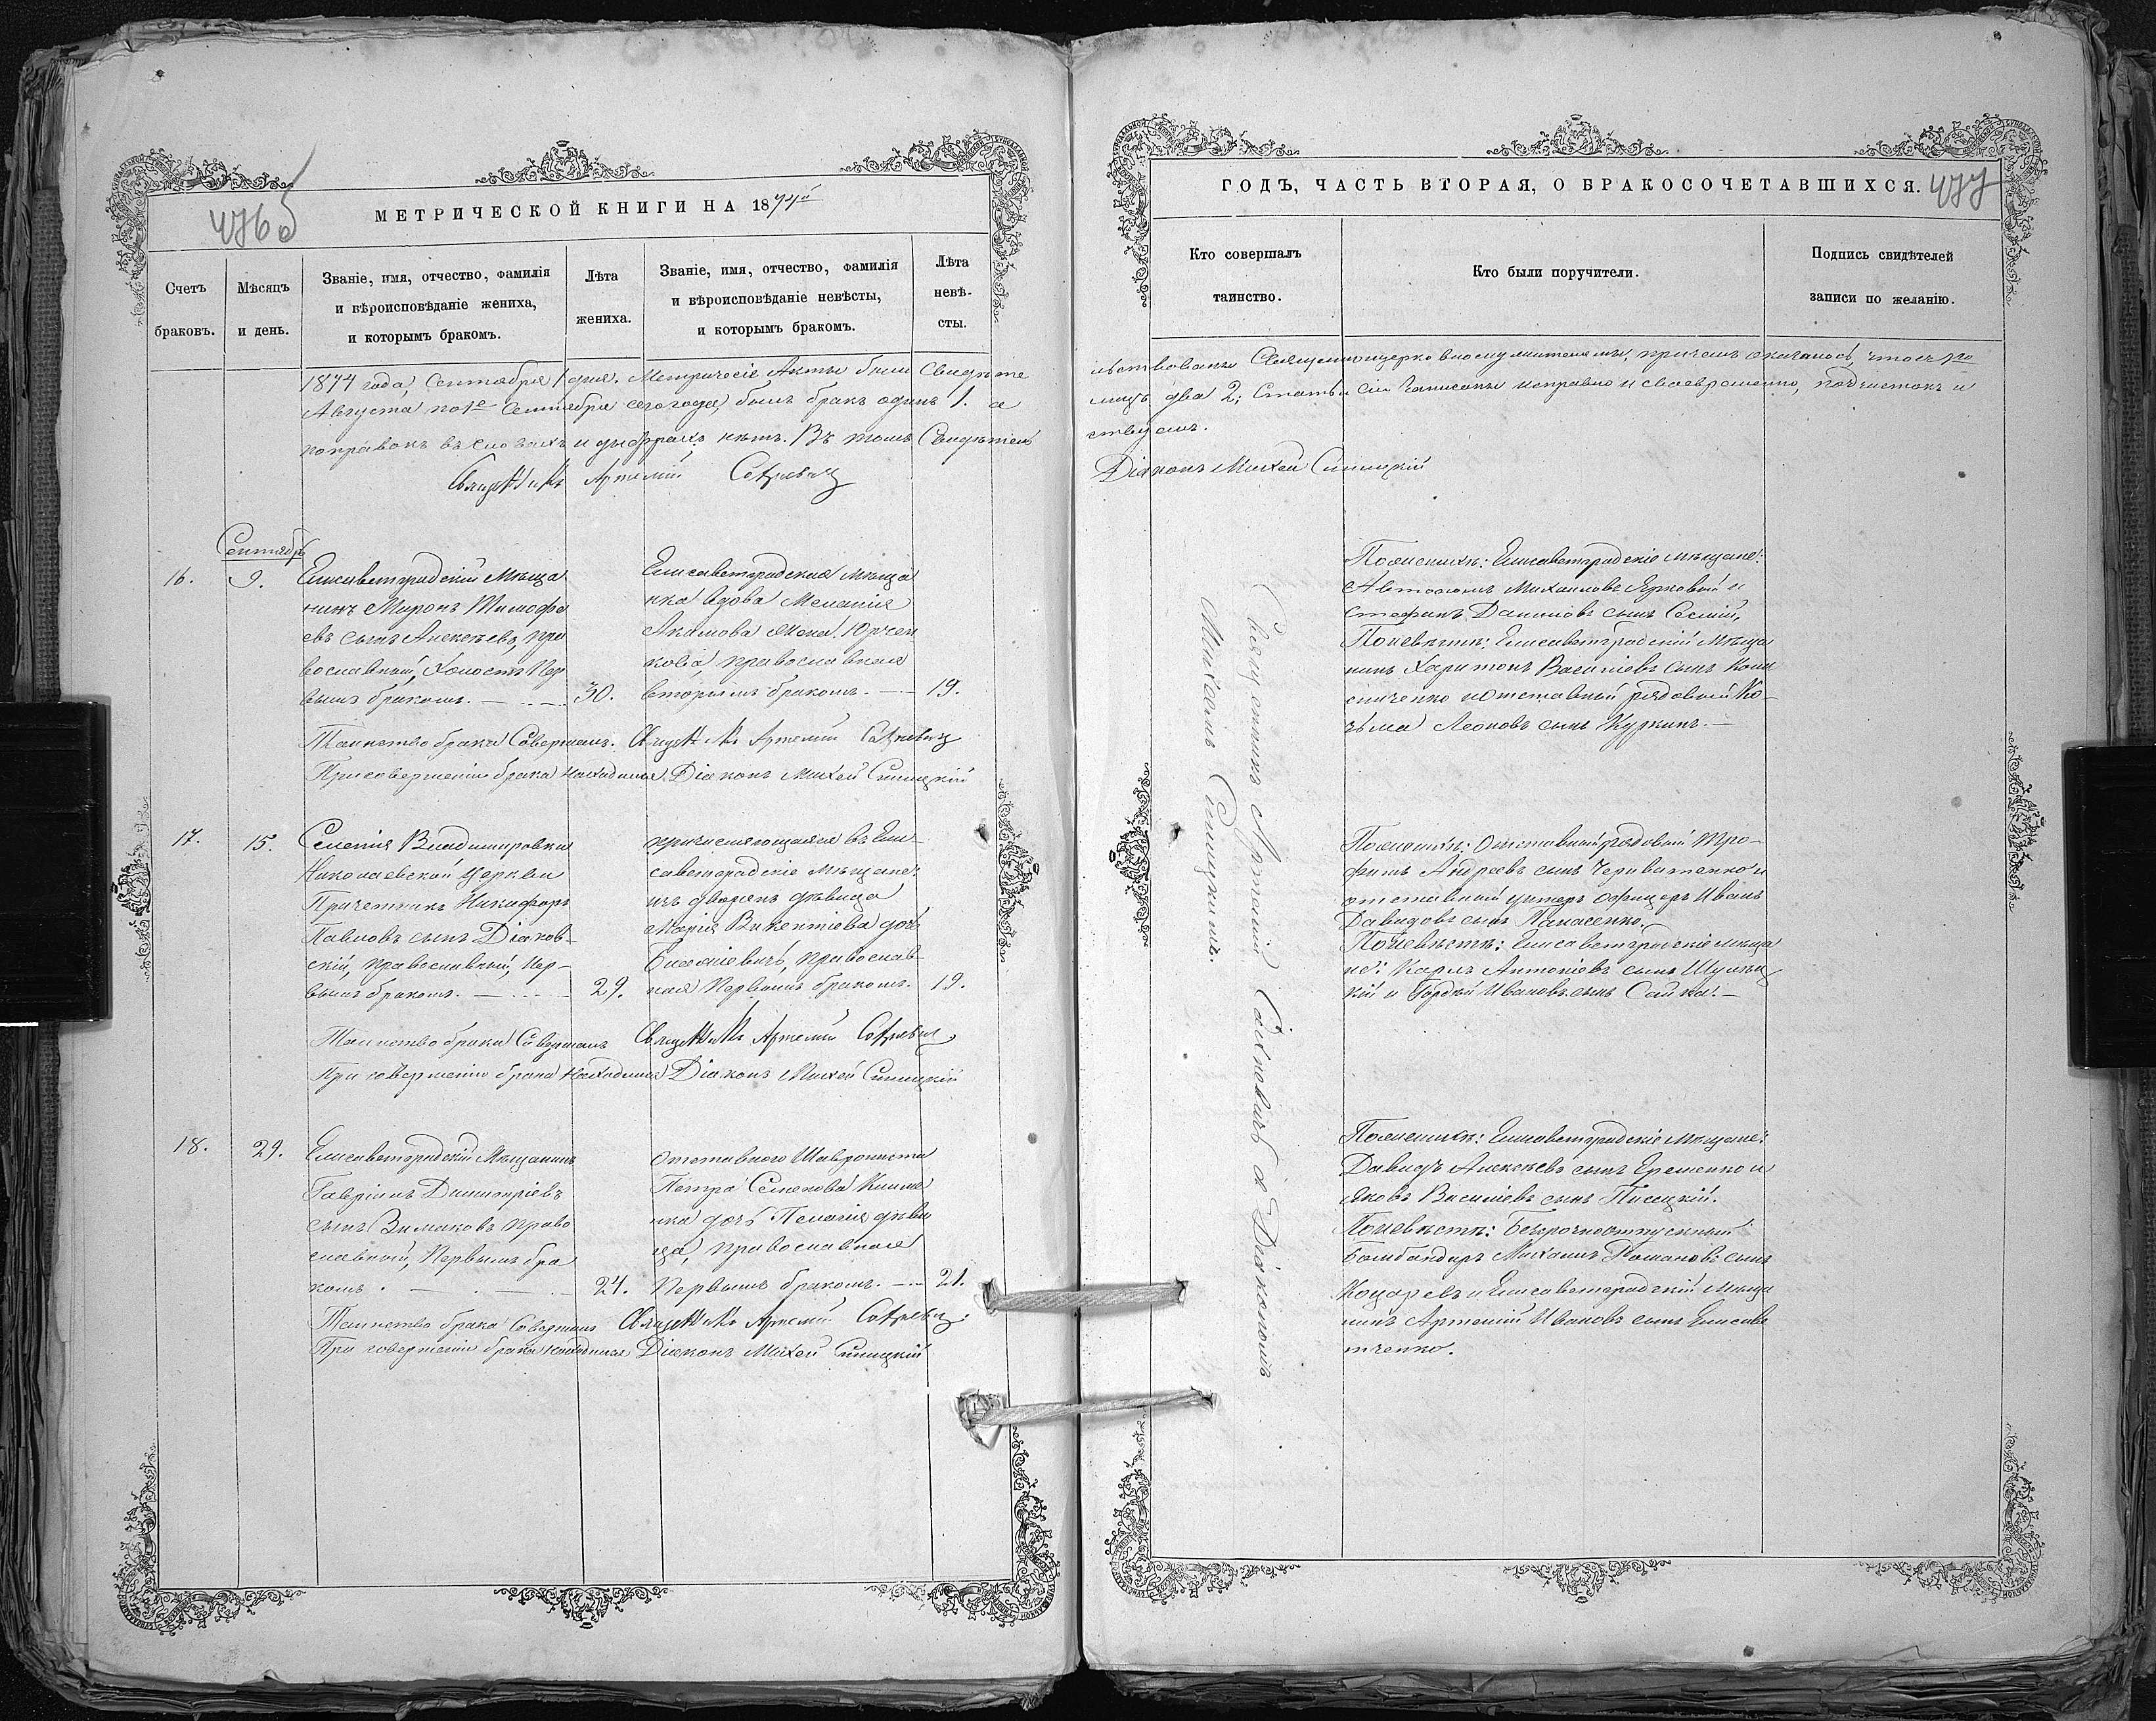 476 б
МЕТРИЧЕСКОЙ КНИГИ НА 1874й
Счетъ браковъ.
Мѣсяцъ и день.
Званіе, имя, отчество, фамилія и вѣроисповѣданіе жениха, и которымъ бракомъ.
Лѣта жениха.
Званіе, имя, отчество, фамилія и вѣроисповѣданіе невѣсты, и которымъ бракомъ.
Лѣта невѣсты.
1874 года, Сентября 1 дня. Метрическіе Акты были Свидѣте
Августа по 1е Сентября сего года, былъ бракъ одинъ 1. а
поправокъ въ словахъ и цыфрахъ нѣтъ. Въ томъ Свидѣтель
Священникъ Артемій
Сентябрь
16.
9.
Елисаветградскій мѣща
нинъ Миронъ Тимофе
евъ сынъ Алексѣевъ, пра
вославный, холостъ пер
вымъ бракомъ.
30.
Елисаветградская мѣща
нка вдова Меланія
Акимова жена
православная
вторымъ бракомъ.
19.
Таинство брака Совершалъ. Священникъ Артемій
При совершеніи брака находился Діаконъ Михей Синицкій
17.
15.
Селенія Владимировки
Николаевской Церкви
Причетникъ Никифоръ
Павловъ сынъ Діаков-
скій, православный, пер-
вымъ бракомъ.
29.
причисляющаяся въ Ели-
саветградскіе мѣщане
изъ дворянъ дѣвица
Марія Викентіева дочь
православ-
ная первымъ бракомъ.
19.
Таинство брака Совершалъ Священникъ Артемій
При совершеніи брака находился Діаконъ Михей Синицкій
18.
29.
Елисаветградскій Мѣщанинъ
Гавріилъ Димитріевъ
сынъ Зимаковъ право
славный, первымъ бра
комъ.
24.
отставного
Петра Семенова Климе
нка дочь Пелагія дѣви
ца, православная
первымъ бракомъ.
21.
Таинство брака Совершалъ Священникъ Артемій
При совершеніи брака находился Діаконъ Михей Синицкій
ГОДЪ, ЧАСТЬ ВТОРАЯ, О БРАКОСОЧЕТАВШИХСЯ.
477
Кто совершалъ таинство.
Кто были поручители.
Подпись свидѣтелей записи по желанію.
льствованы Священноцерковнослужителями, причемъ оказалось, что съ 1го
лицъ два 2; Статьи сіи Записаны исправно и своевременно, подчистокъ и
ствуемъ.
Діаконъ Михей Синицкій
Священникъ Артемій съ Діакономъ
Михаемъ Синицкимъ.
По женихѣ: Елисаветградскіе мѣщане:
Автономъ Михаиловъ Ярковой и
Стефанъ Даниловъ сынъ
По невѣстѣ: Елисаветградскій мѣща
нинъ Харитонъ Васильевъ сынъ
и отставный рядовый Ко-
зьма Леоновъ сынъ Куркинъ.
По женихѣ: Отставный рядовый Тро-
фимъ Андреевъ сынъ и
отставный унтеръ офицеръ Иванъ
Давидовъ сынъ Панасенко.
По невѣстѣ: Елисаветградскіе мѣща
не: Карлъ Антоніевъ сынъ
кій и Гордѣй Ивановъ сынъ Сайка.
По женихѣ: Елисаветградскіе мѣщане:
Давидъ Алексѣевъ сынъ Еременко и
Яковъ Василіевъ сынъ
По невѣстѣ: Безсрочноотпускный
Бомбандиръ Михаилъ Романовъ сынъ
Коцаревъ и Елисаветградскій мѣща
нинъ Артемій Ивановъ сынъ Елисаве
тченко.